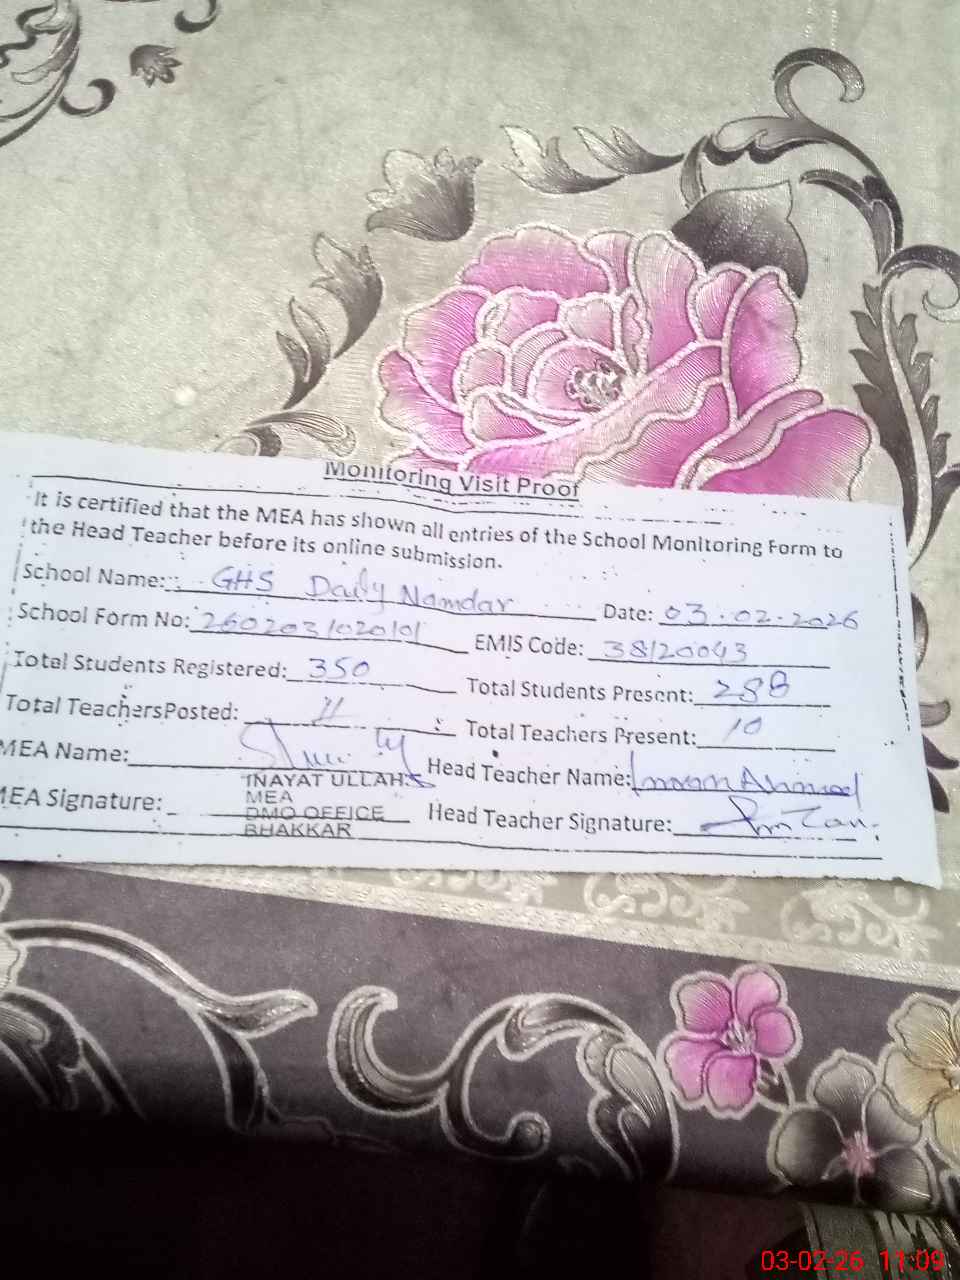 Monitoring Visit Proof
It is certified that the MEA has shown all entries of the School Monitoring Form to
the Head Teacher before its online submission.
School Name: GHS Daily Namdar Date: 03.02.2026
School Form No: 2602031020101 EMIS Code: 38120043
Total Students Registered: 350 Total Students Present: 288
Total TeachersPosted: 11 Total Teachers Present: 10
MEA Name: Head Teacher Name: Imran Ahmed
INAYAT ULLAH
MEA Signature: MEA Head Teacher Signature:
DMO OFFICE
BHAKKAR
03-02-26 11:09